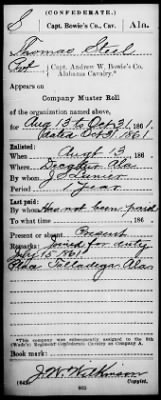 (CONFEDERATE.)
S Capt. Bowie's Co., Cav. Ala.
Thomas Steel
Pvt Capt. Andrew W. Bowie's Co.
Alabama Cavalry.*
Appears on
Company Muster Roll
of the organization named above,
for Aug 13 to Oct 31, 1861.
dated Oct 31 1861
Enlisted:
When Aug 13, 186
Where Ala
By whom
Period 1 year
Last paid:
By whom Has not been paid
To what time , 186
Present or absent Present
Remarks: Joined for duty
15 1861
Place Talladega Ala
*This company was subsequently assigned to the 8th
(Wade's) Regiment Confederate Cavalry as Company A.
Book mark:
J. W. Wilkinson
(642) Copyist.